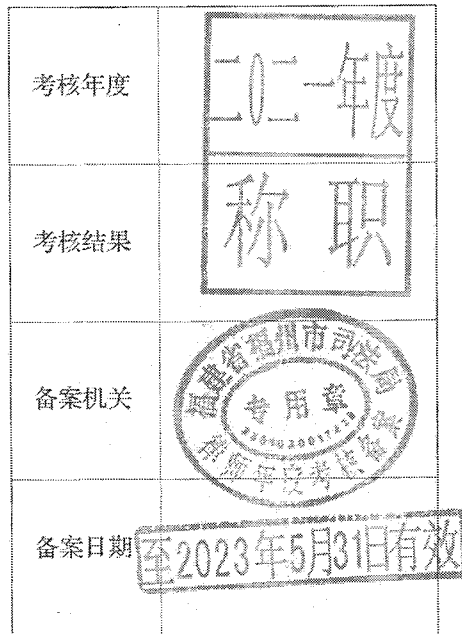 考核年度
二0二一年度
考核结果
称职
备案机关
福建省福州市司法局
专用章
律师年度考核备案
备案日期
至2023年5月31日有效